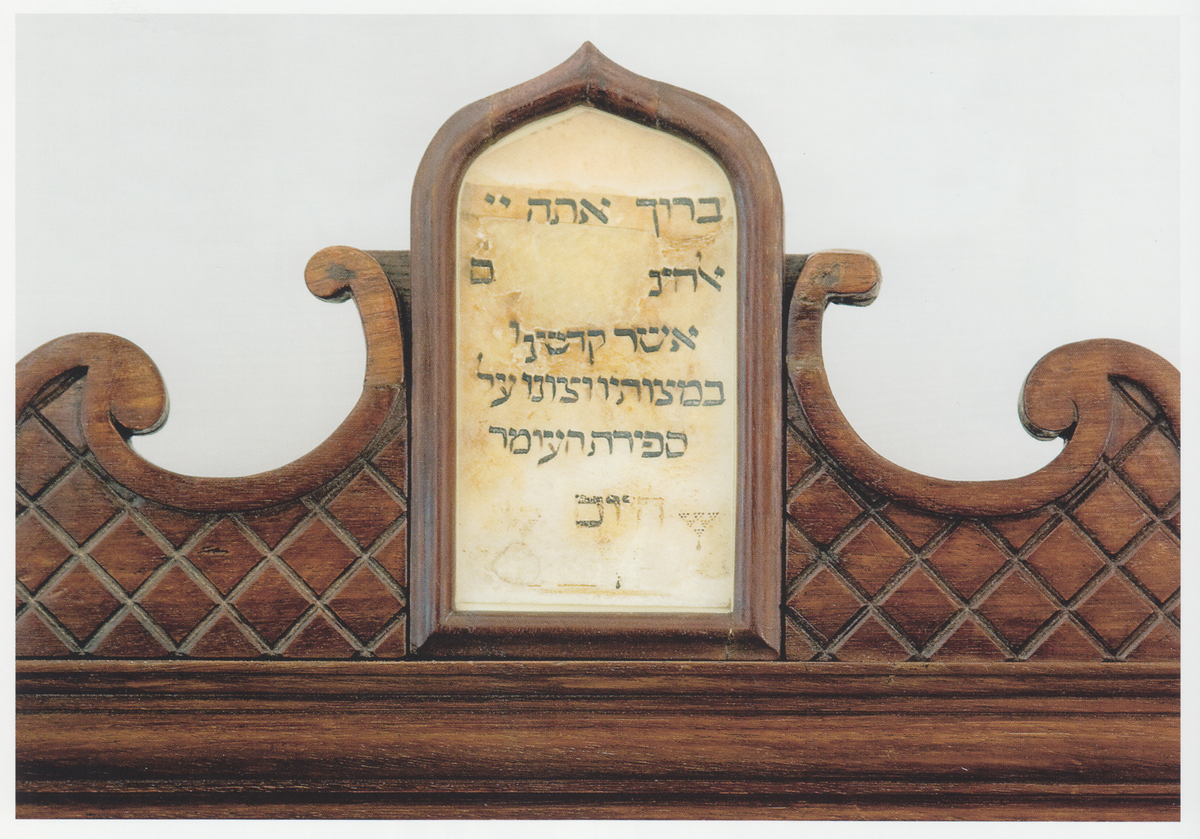 ברוך אתה יי
אשר קדשנו
במצותיו וצונו על
ספירת העומר
היום